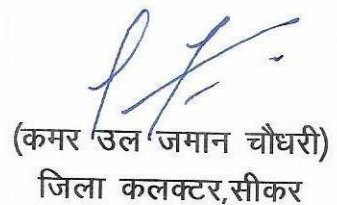 (कमर उल जमान चौधरी)
जिला कलक्टर,सीकर